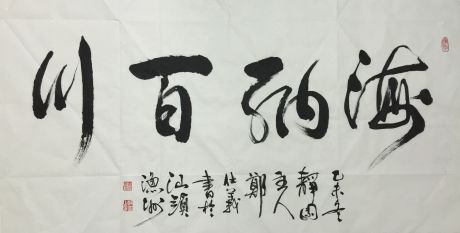 海納百川
乙未冬
靜園
主人
鄭
仕義
書於
汕頭
漁洲